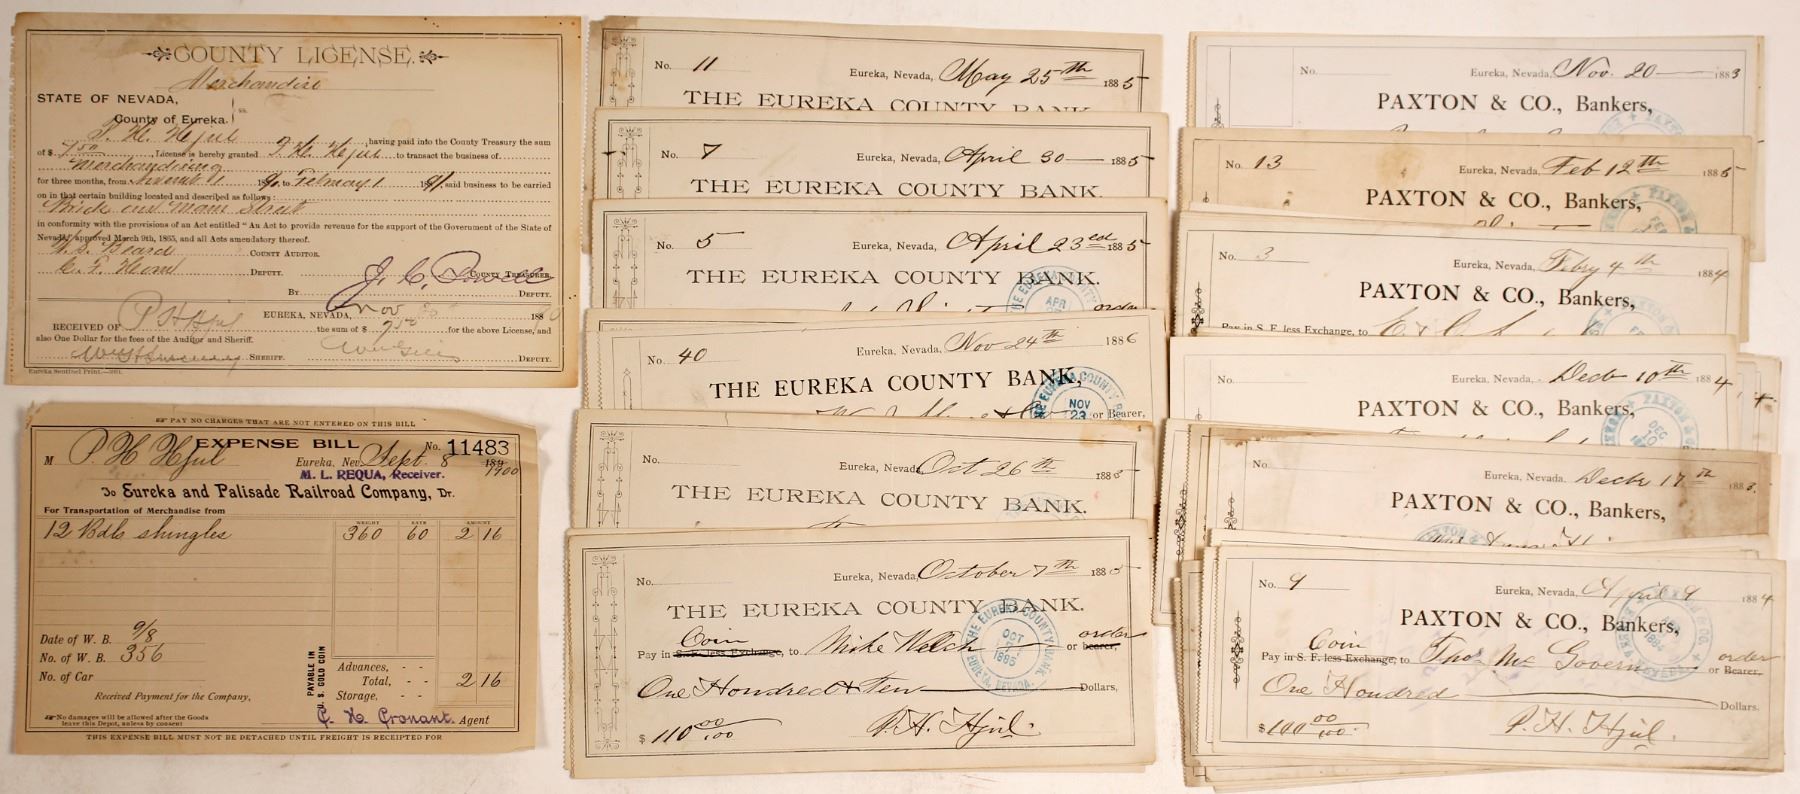 COUNTY LICENSE.
Merchandise
STATE OF NEVADA,
County of Eureka. ss.
P. H. Hjul, having paid into the County Treasury the sum
of $7.50, License is hereby granted P. H. Hjul to transact the business of
Merchandising
for three months, from November 1 1890, to February 1 1891, said business to be carried
on in that certain building located and described as follows:
Brick Main Street
in conformity with the provisions of an Act entitled "An Act to provide revenue for the support of the Government of the State of
Nevada," approved March 9th, 1865, and all Acts amendatory thereof.
Beard COUNTY AUDITOR.
DEPUTY.
J. C. Powell COUNTY TREASURER.
By DEPUTY.
EUREKA, NEVADA, Nov 188
RECEIVED OF P H Hjul the sum of $7.50 for the above License, and
also One Dollar for the fees of the Auditor and Sheriff.
SHERIFF. DEPUTY.
Eureka Sentinel Print.
PAY NO CHARGES THAT ARE NOT ENTERED ON THIS BILL
EXPENSE BILL No. 11483
M P. H Hjul Eureka, Nev. Sept. 8 1900
M. L. REQUA, Receiver.
To Eureka and Palisade Railroad Company, Dr.
For Transportation of Merchandise from
WEIGHT RATE AMOUNT
12 Bdls shingles 360 60 2 16
Date of W. B. 9/8
No. of W. B. 356
No. of Car
Advances, - -
Total, - - 2 16
Storage, - -
PAYABLE IN
U. S. GOLD COIN
Received Payment for the Company,
No damages will be allowed after the Goods
leave this Depot, unless by consent
Agent
THIS EXPENSE BILL MUST NOT BE DETACHED UNTIL FREIGHT IS RECEIPTED FOR
No. 11 Eureka, Nevada, May 25th 1885
THE EUREKA COUNTY BANK
No. 7 Eureka, Nevada, April 30 1885
THE EUREKA COUNTY BANK.
No. 5 Eureka, Nevada, April 23rd 1885
THE EUREKA COUNTY BANK.
order
No. 40 Eureka, Nevada, Nov 24th 1886
THE EUREKA COUNTY BANK,
or Bearer,
THE EUREKA COUNTY
NOV
23
No. Eureka, Nevada, Oct 26th 1885
THE EUREKA COUNTY BANK.
No. Eureka, Nevada, October 7th 1885
THE EUREKA COUNTY BANK.
Coin order
Pay in S. F. less Exchange, to Mike Welch or bearer,
One Hundred & Ten Dollars,
$110 00/100 P. H. Hjul.
THE EUREKA COUNTY BANK.
OCT
1885
EUREKA, NEVADA.
No. Eureka, Nevada, Nov. 20 1883
PAXTON & CO., Bankers,
No. 13 Eureka, Nevada, Feb 12th 1885
PAXTON & CO., Bankers,
No. 3 Eureka, Nevada, Febry 4th 1884
PAXTON & CO., Bankers,
Pay in S. F. less Exchange, to
No. Eureka, Nevada, Decb 10th 1884
PAXTON & CO., Bankers,
No. Eureka, Nevada, Decbr 17th 1883
PAXTON & CO., Bankers,
No. 9 Eureka, Nevada, April 9 1884
PAXTON & CO., Bankers,
Coin order
Pay in S. F. less Exchange, to Thos Mc Govern or Bearer,
One Hundred Dollars.
$100 00/100 P. H. Hjul.